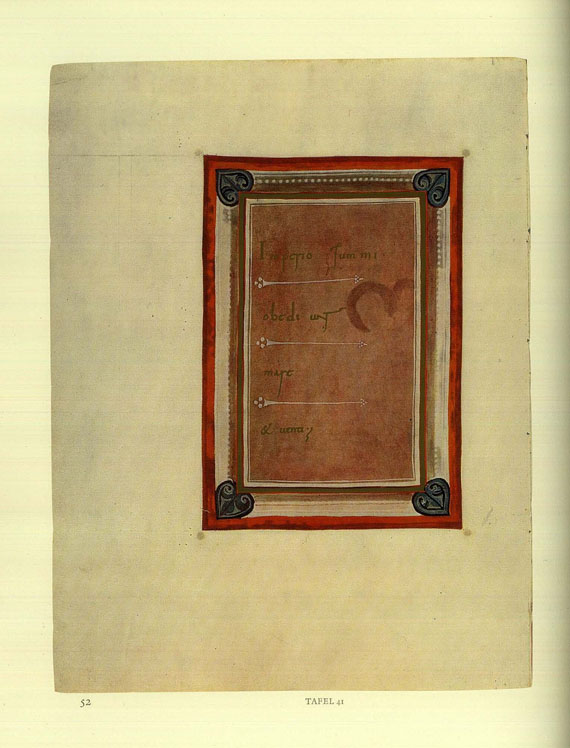 Imperio summi
obediunt
mare
& venti
52
TAFEL 41